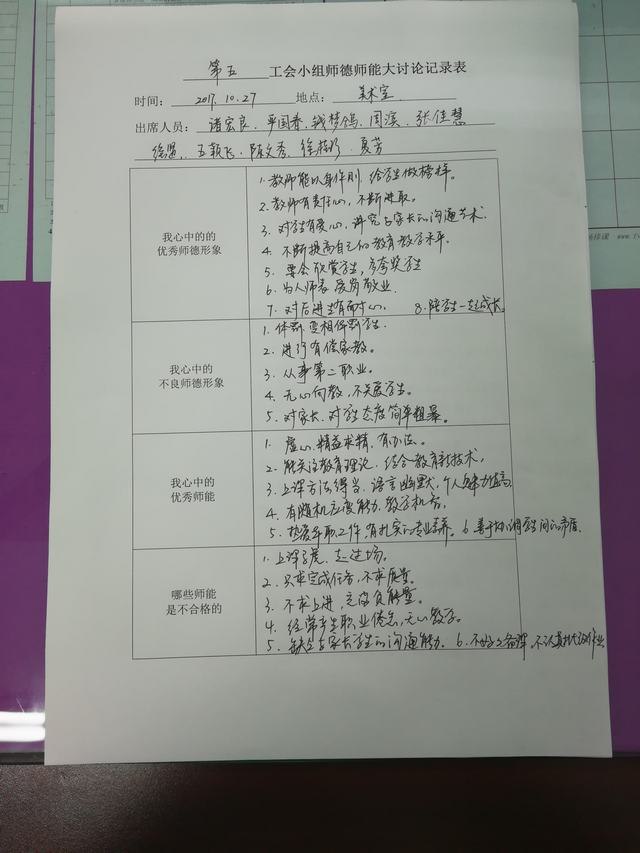 第五 工会小组师德师能大讨论记录表
时间： 2017.10.27 地点： 美术室
出席人员： 诸宏良、平国春、钱梦鸽、周滨、张佳慧
王轶飞、陈文秀、徐桂珍、夏芳
我心中的的
优秀师德形象
1. 教师能以身作则，给学生做榜样。
2. 教师有责任心，不断进取。
3. 对学生有爱心，讲究与家长的沟通艺术.
4. 不断提高自己的教育教学水平.
5. 要会欣赏学生，多夸奖学生
6. 为人师表 爱岗敬业.
7. 对后进生有耐心. 8. 陪学生一起成长.
我心中的
不良师德形象
1. 体罚、变相体罚学生.
2. 进行有偿家教。
3. 从事第二职业。
4. 无心向教，不关爱学生。
5. 对家长、对学生态度简单粗暴。
我心中的
优秀师能
1. 虚心、精益求精、有办法。
2. 能关注教育理论，结合教育新技术，
3. 上课方法得当，语言幽默，个人魅力值高
4. 有随机应变能力，教学机智。
5. 热爱本职工作，有扎实的专业素养。 6. 善于协调学生间的矛盾.
哪些师能
是不合格的
1. 上课 走过场。
2. 只求完成任务，不求质量。
3. 不求上进，充满负能量。
4. 经常产生职业倦怠，无心教学。
5. 缺乏与家长学生的沟通能力. 6. 不好好备课，不认真批改作业.